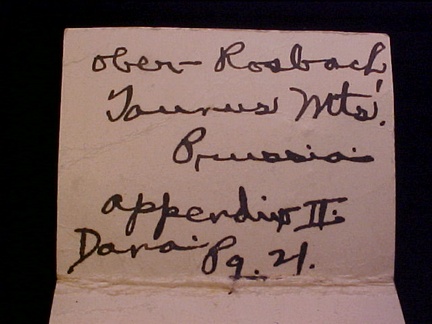 Ober-Rosbach
Taunus Mts.
Prussia
Appendix II.
Dana Pg. 21.